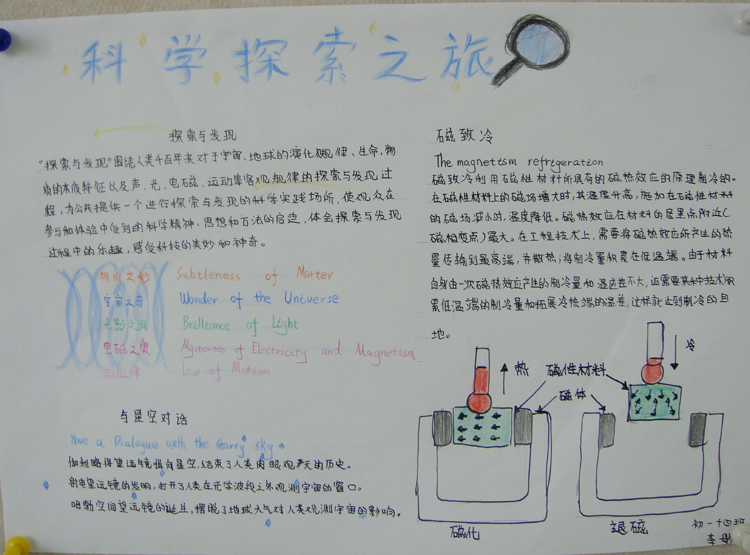 科学探索之旅
探索与发现
"探索与发现"围绕人类千百年来对于宇宙、地球的演化规律、生命,物
质的本质特征以及声、光、电磁、运动等客观规律的探索与发现过
程,为公共提供一个进行探索与发现的科学实践场所,使观众在
参与和体验中受到的科学精神、思想和方法的启迪,体会探索与发现
过程中的乐趣,感受科技的美妙和神奇。
物质之妙 Subtleness of Matter
宇宙之奇 Wonder of the Universe
光影之 Brilliance of Light
电磁之奥 Mysteries of Electricity and Magnetism
Law of Motion
与星空对话
Have a Dialogue with the starry sky
伽利略将望远镜指向星空,结束了人类肉眼观天的历史。
射电望远镜的发明,打开了人类在光学波段之外观测宇宙的窗口。
哈勃空间望远镜的诞生,摆脱了地球大气对人类观测宇宙的影响。
磁致冷
The magnetism refrigeration
磁致冷利用磁性材料所具有的磁热效应的原理制冷的。
在磁性材料上的磁场增大时,其温度升高,施加在磁性材料
的磁场减小时,温度降低。磁热效应在材料的居里点附近(
磁相变点)最大。在工程技术上,需要将磁热效应所产生的热
量传输到最高端,并散热;将制冷量积累在低温端。由于材料
自身由一次磁热效应产生的制冷量和温差不大,还需要某种技术积
累低温端的制冷量和拓展冷热端的温差,这样就达到制冷的目
地。
热
磁性材料
磁体
冷
磁化
退磁
初一十四班
李